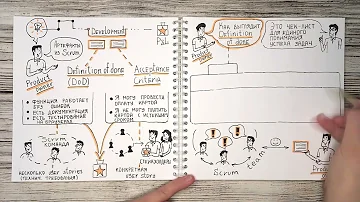 Артефакты
из Scrum
Development
PSI
Product
owner
Definition of done
(DoD)
Acceptance
Criteria
• Функция работает
без ошибок
• Есть документация
• Есть тестирование
• Я могу провести
оплату картой
• Я не могу платить
картой с истекшим
сроком
Scrum
команда
Стейкхолдеры
Несколько user story
(технич. требования)
Конкретная
user story
Как выглядит
Definition
of done
Это чек-лист
для единого
понимания
успеха задач
Product
owner
Scrum
team
Product